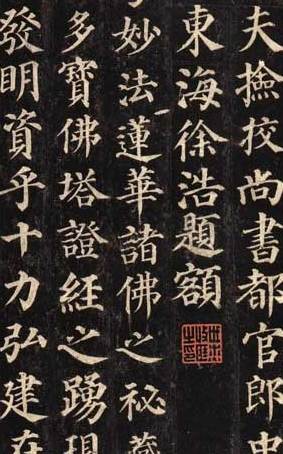 夫撿挍尚書都官郎中
東海徐浩題額
妙法蓮華諸佛之祕藏
多寶佛塔證經之踴現
發明資乎十力弘建在